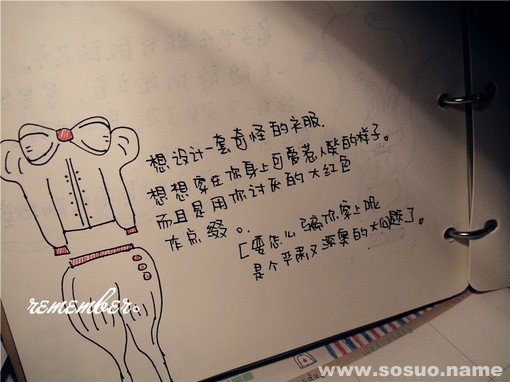 想设计一套奇怪的衣服.
想想穿在你身上可爱惹人笑的样子。
而且是用你讨厌的大红色
作点缀。.
[要怎么骗你穿上呢
是个严肃又深奥的大问题了。
remember。
www.sosuo.name